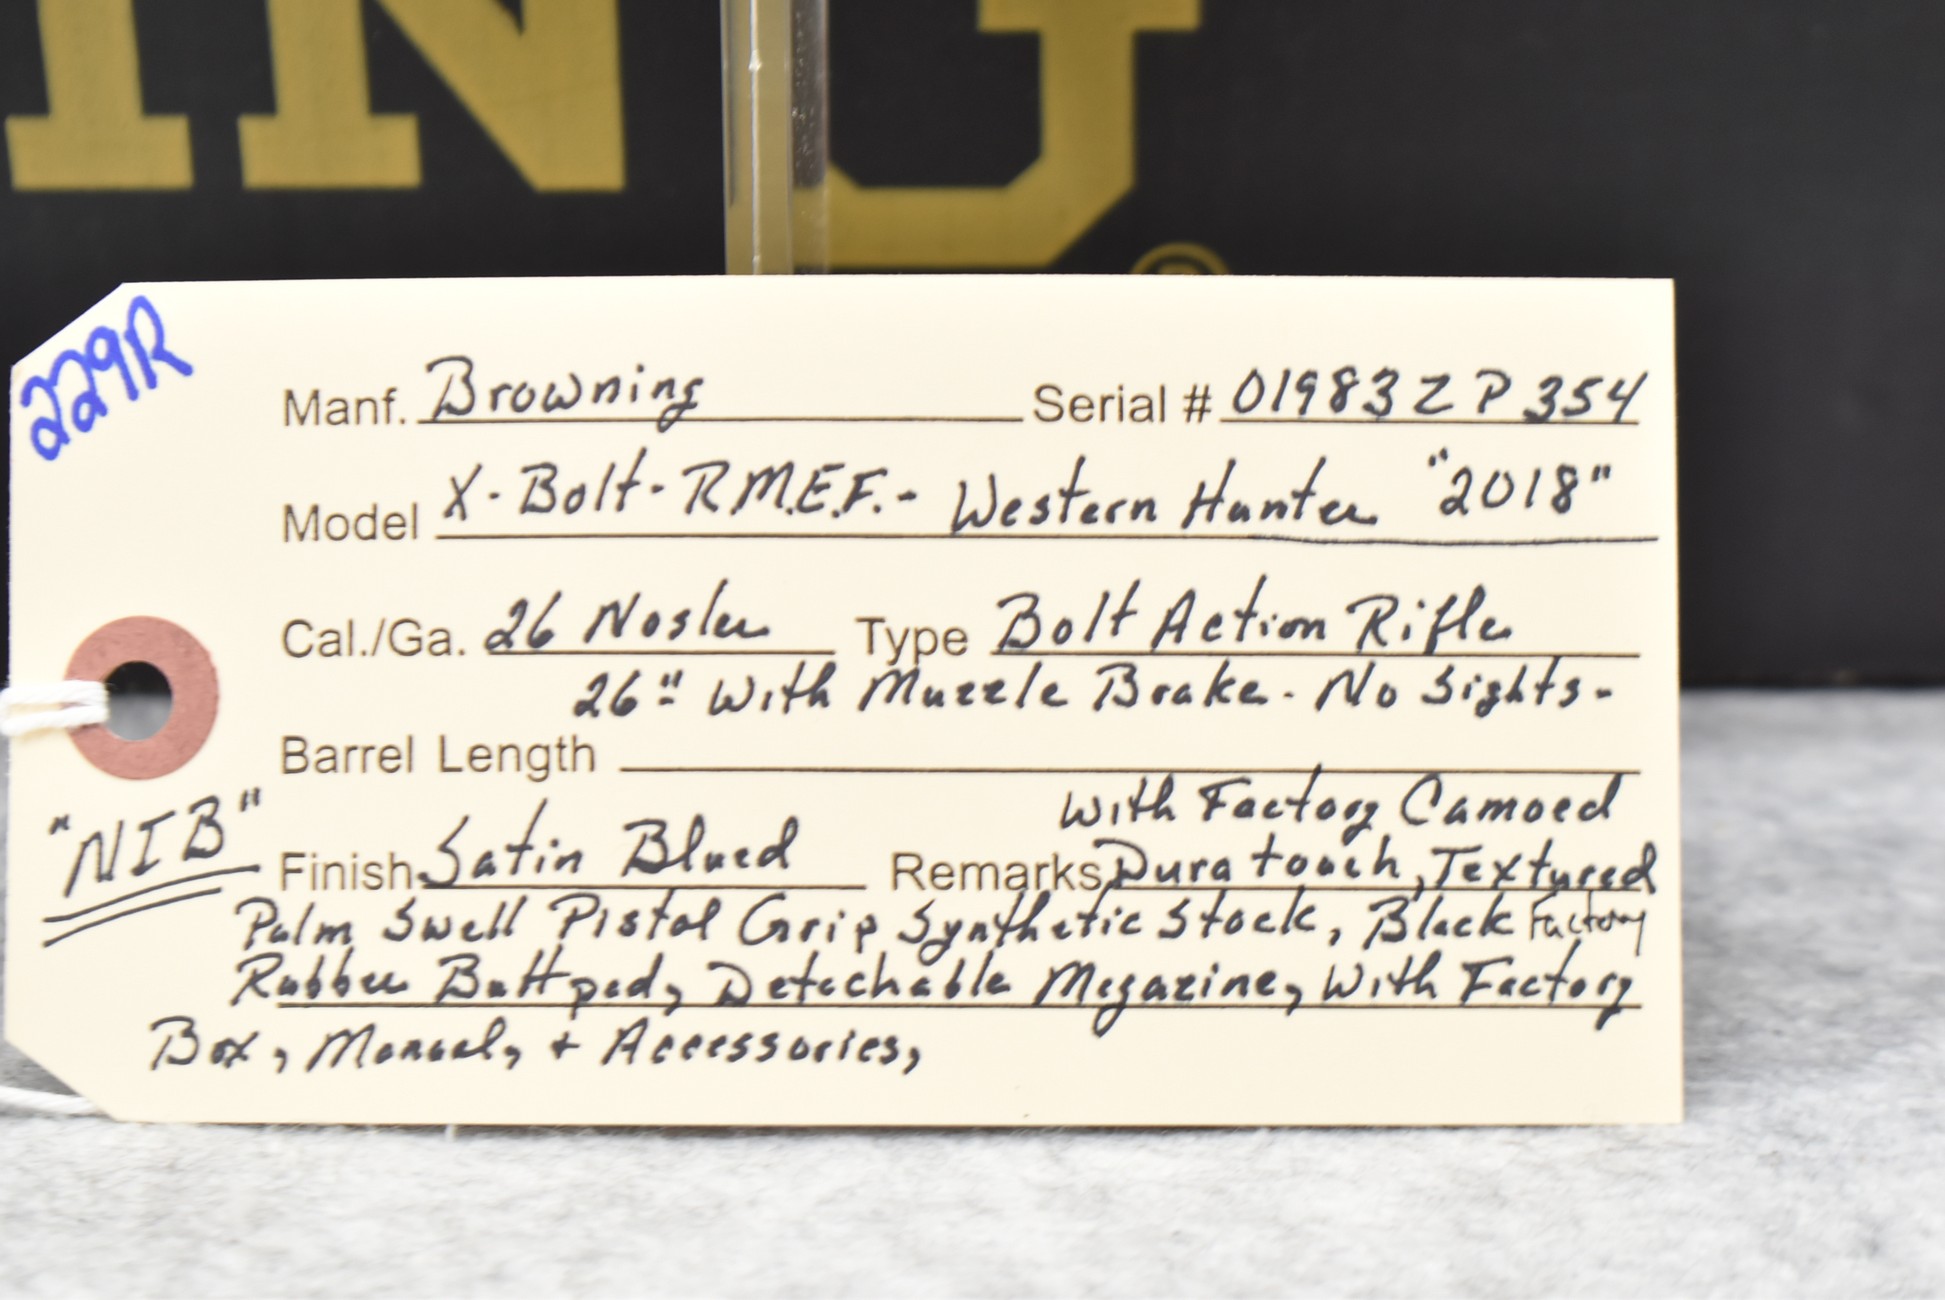 ING
®
229R
Manf. Browning Serial # 01983ZP354
Model X-Bolt-R.M.E.F.- Western Hunter "2018"
Cal./Ga. 26 Nosler Type Bolt Action Rifle
26" With Muzzle Brake - No Sights -
Barrel Length
With Factory Camoed
"NIB" Finish Satin Blued Remarks Dura touch, Textured
Palm Swell Pistol Grip Synthetic Stock, Black Factory
Rubber Buttpad, Detachable Magazine, With Factory
Box, Manual, + Accessories,